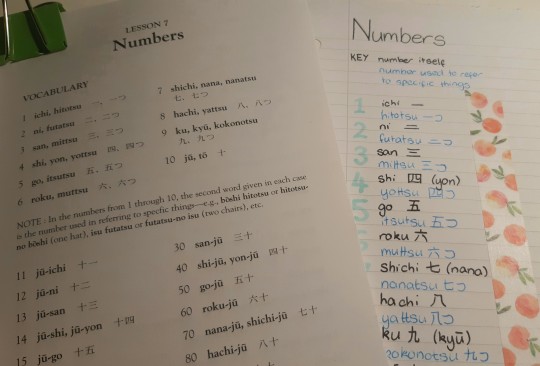 LESSON 7
Numbers
VOCABULARY
1 ichi, hitotsu 一、一つ
2 ni, futatsu 二、二つ
3 san, mittsu 三、三つ
4 shi, yon, yottsu 四、四つ
5 go, itsutsu 五、五つ
6 roku, muttsu 六、六つ
7 shichi, nana, nanatsu
七、七つ
8 hachi, yattsu 八、八つ
9 ku, kyū, kokonotsu
九、九つ
10 jū, tō 十
NOTE: In the numbers from 1 through 10, the second word given in each case
is the number used in referring to specfic things—e.g., bōshi hitotsu or hitotsu-
no bōshi (one hat), isu futatsu or futatsu-no isu (two chairs), etc.
11 jū-ichi 十一
12 jū-ni 十二
13 jū-san 十三
14 jū-shi, jū-yon 十四
15 jū-go 十五
30 san-jū 三十
40 shi-jū, yon-jū 四十
50 go-jū 五十
60 roku-jū 六十
70 nana-jū, shichi-jū 七十
80 hachi-jū 八十
Numbers
KEY number itself
number used to refer
to specific things
1 ichi 一
hitotsu 一つ
2 ni 二
futatsu 二つ
3 san 三
mittsu 三つ
4 shi 四 (yon)
yottsu 四つ
5 go 五
itsutsu 五つ
roku 六
muttsu 六つ
shichi 七 (nana)
nanatsu 七つ
hachi 八
yattsu 八つ
ku 九 (kyū)
kokonotsu 九つ